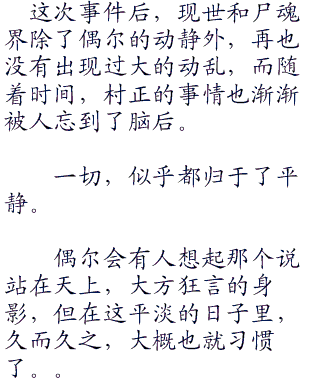 这次事件后，现世和尸魂
界除了偶尔的动静外，再也
没有出现过大的动乱，而随
着时间，村正的事情也渐渐
被人忘到了脑后。
一切，似乎都归于了平
静。
偶尔会有人想起那个说
站在天上，大方狂言的身
影，但在这平淡的日子里，
久而久之，大概也就习惯
了。。